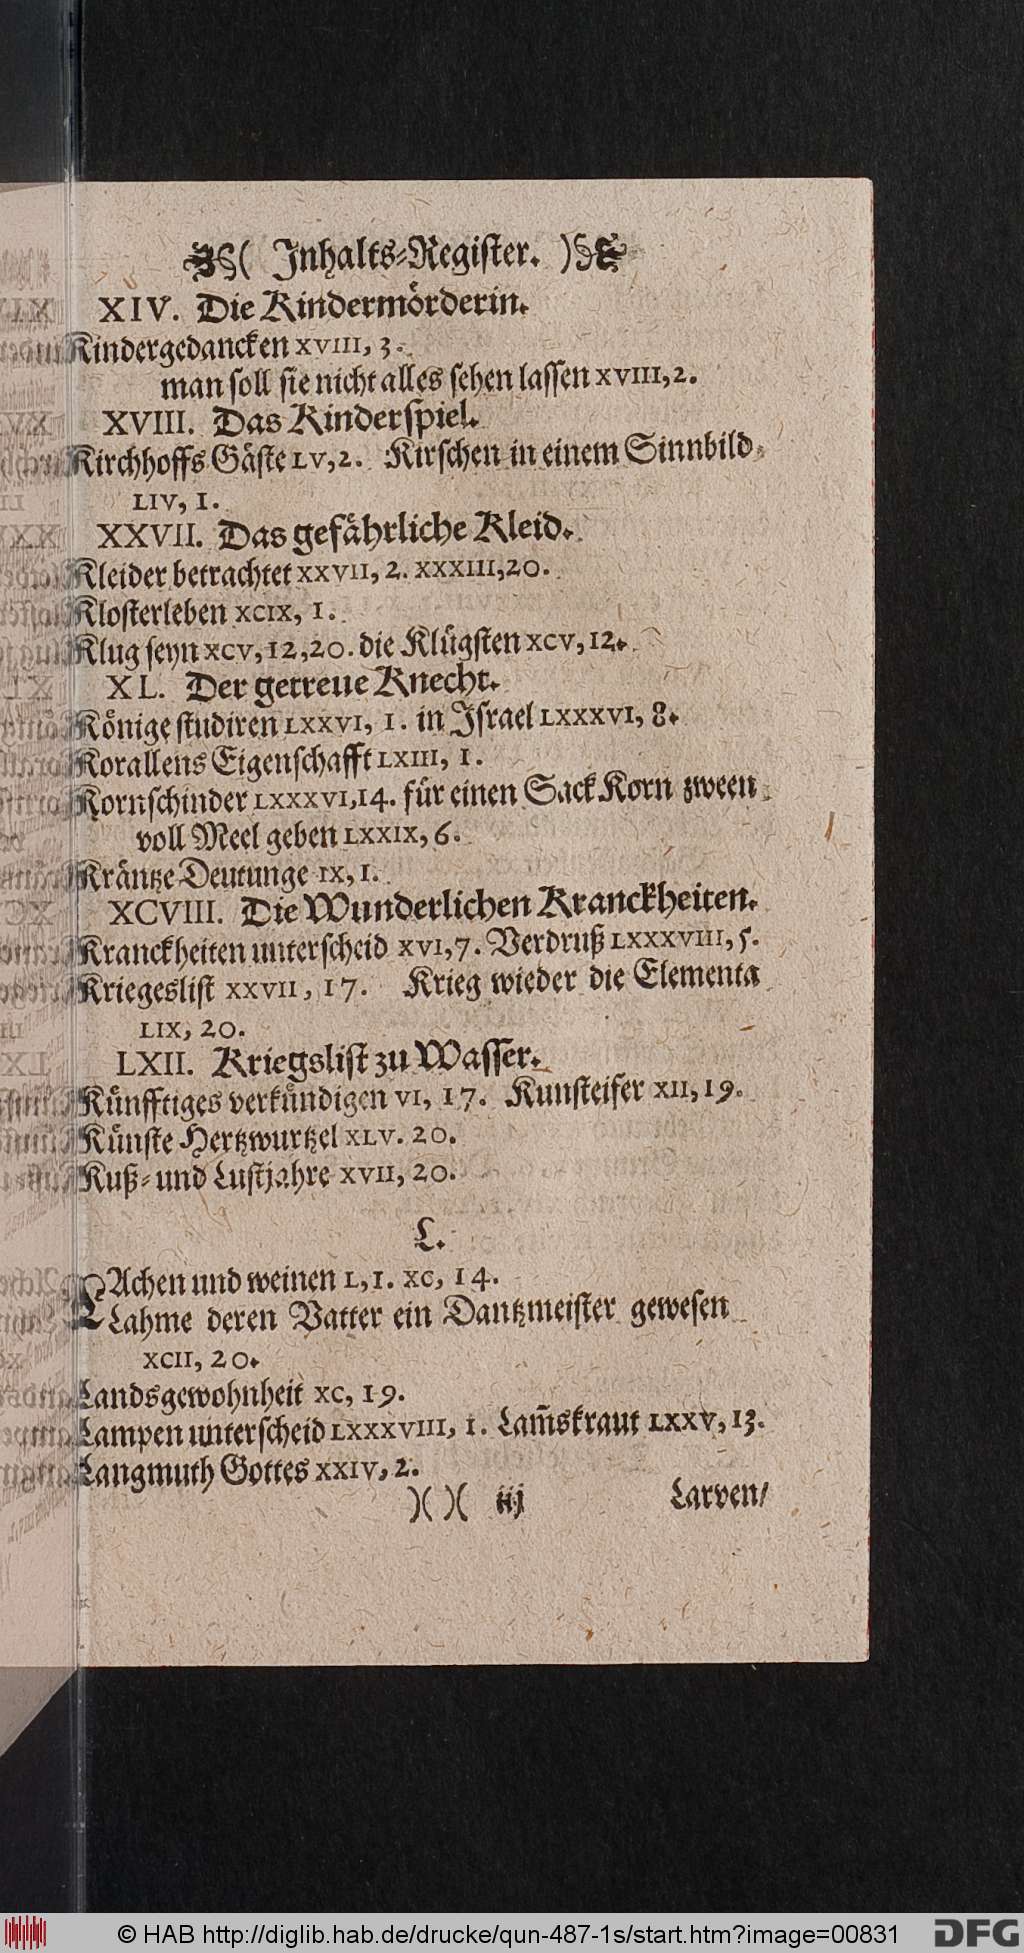 ( Inhalts-Register. )
XIV. Die Kindermörderin.
Kindergedancken XVIII, 3.
man soll sie nicht alles sehen lassen XVIII, 2.
XVIII. Das Kinderspiel.
Kirchhoffs Gäste LV, 2. Kirschen in einem Sinnbild-
LIV, 1.
XXVII. Das gefährliche Kleid.
Kleider betrachtet XXVII, 2. XXXIII, 20.
Klosterleben XCIX, 1.
Klug seyn XCV, 12, 20. die Klügsten XCV, 12.
XL. Der getreue Knecht.
Könige studiren LXXVI, 1. in Israel LXXXVI, 8.
Korallens Eigenschafft LXIII, 1.
Kornschinder LXXXVI, 14. für einen Sack Korn zween
voll Meel geben LXXIX, 6.
Kräntze Deutunge IX, 1.
XCVIII. Die Wunderlichen Kranckheiten.
Kranckheiten unterscheid XVI, 7. Verdruß LXXXVIII, 5.
Kriegeslist XXVII, 17. Krieg wieder die Elementa
LIX, 20.
LXII. Kriegslist zu Wasser.
Künfftiges verkündigen VI, 17. Kunsteifer XII, 19.
Künste Hertzwurtzel XLV. 20.
Kuß- und Lustjahre XVII, 20.
L.
LAchen und weinen L, 1. XC, 14.
Lahme deren Vatter ein Dantzmeister gewesen
XCII, 20.
Landsgewohnheit XC, 19.
Lampen unterscheid LXXXVIII, 1. Lam̃skraut LXXV, 13.
Langmuth Gottes XXIV, 2.
)( )( iij Larven/
© HAB http://diglib.hab.de/drucke/qun-487-1s/start.htm?image=00831 DFG